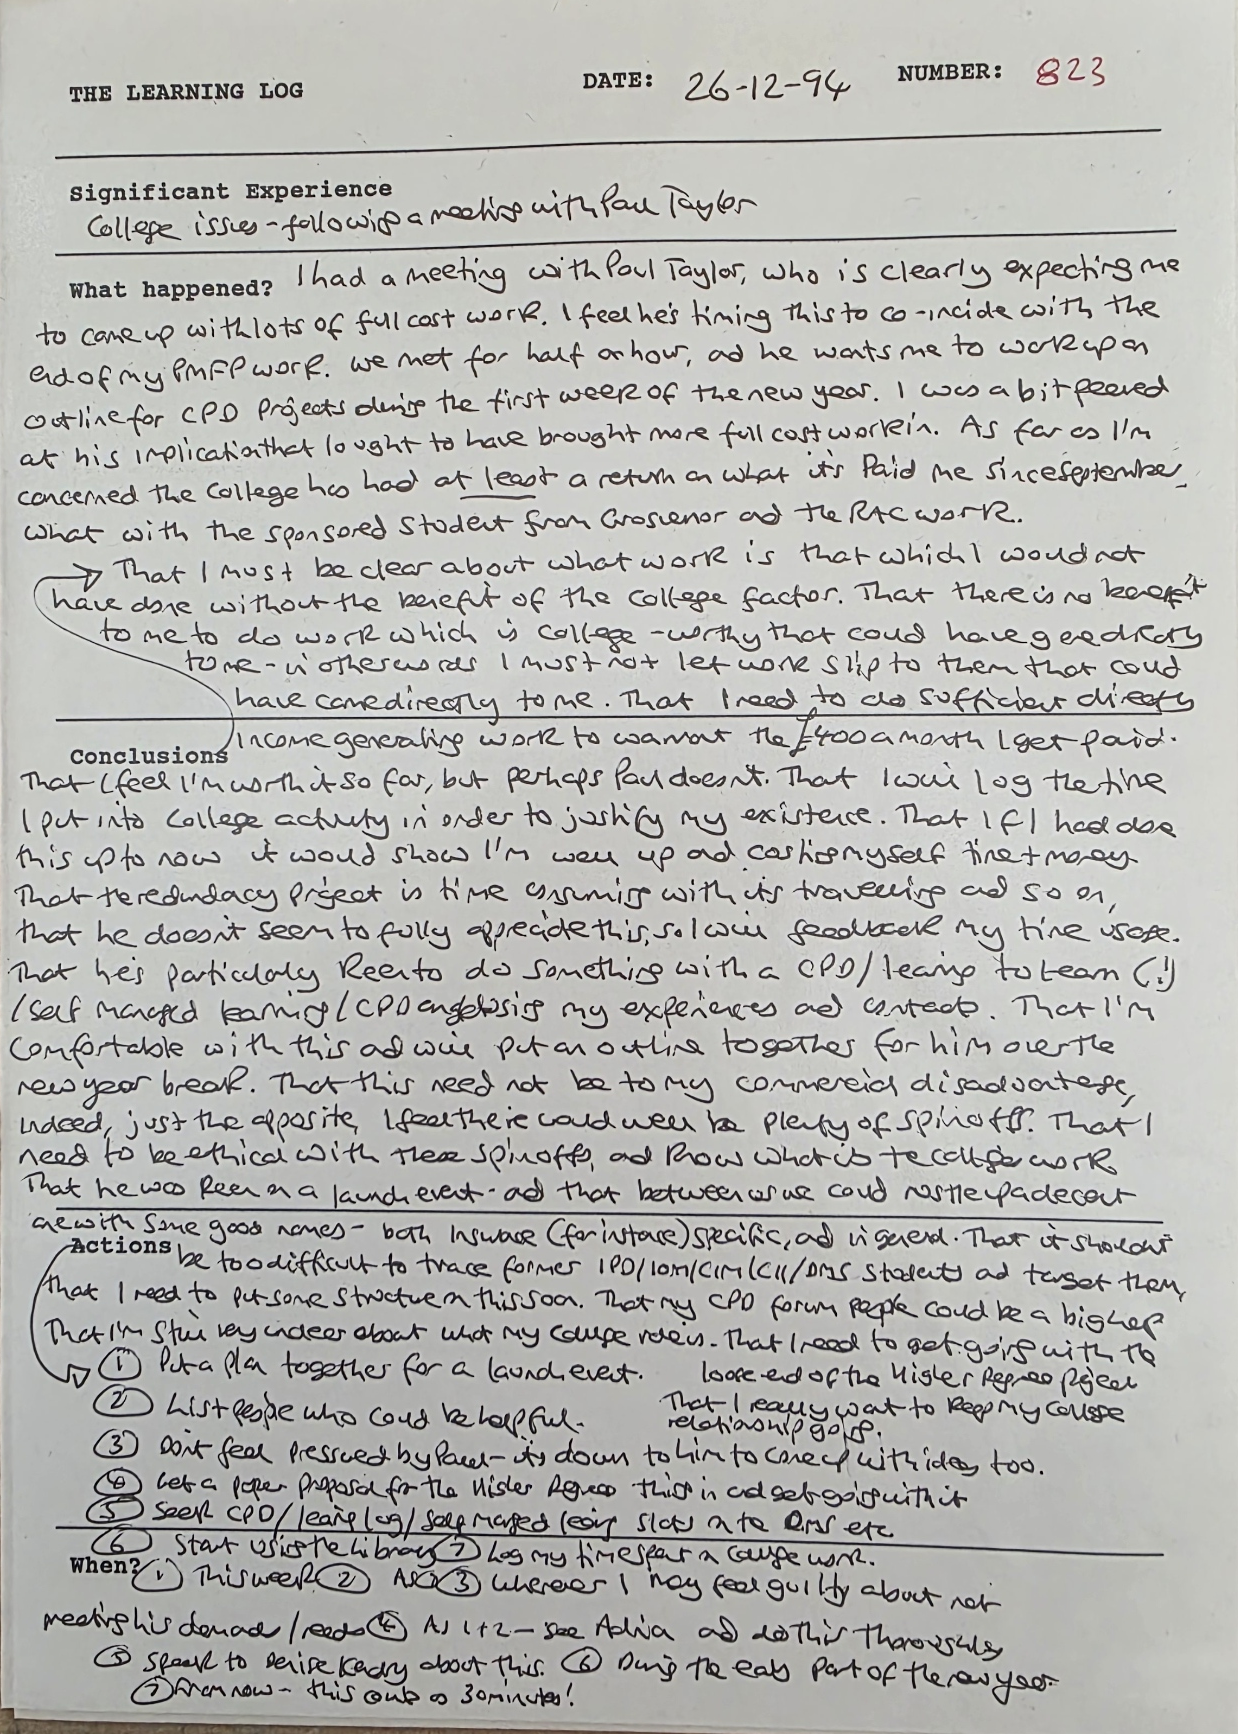 THE LEARNING LOG DATE: 26-12-94 NUMBER: 823
Significant Experience
College issues - following a meeting with Paul Taylor
What happened? I had a meeting with Paul Taylor, who is clearly expecting me
to come up with lots of full cost work. I feel he's timing this to co-incide with the
end of my PMFP work. We met for half an hour, and he wants me to work up an
outline for CPD projects during the first week of the new year. I was a bit peeved
at his implication that I ought to have brought more full cost work in. As far as I'm
concerned the College has had at least a return on what it's paid me since September,
what with the sponsored student from Grosvenor and the RAC work.
→ That I must be clear about what work is that which I would not
have done without the benefit of the College factor. That there is no benefit
to me to do work which is College-worthy that could have gone directly
to me - in other words I must not let work slip to them that could
have come directly to me. That I need to do sufficient directly
income generating work to warrant the £400 a month I get paid.
Conclusions
That I feel I'm worth it so far, but perhaps Paul doesn't. That I will log the time
I put into College activity in order to justify my existence. That if I had done
this up to now it would show I'm well up and costing myself time + money.
That the redundancy project is time consuming with its travelling and so on,
that he doesn't seem to fully appreciate this, so I will feedback my time usage.
That he's particularly keen to do something with a CPD/learning to learn (!)
/self managed learning/CPD angle using my experiences and contacts. That I'm
comfortable with this and will put an outline together for him over the
new year break. That this need not be to my commercial disadvantage,
indeed, just the opposite, I feel there could well be plenty of spin offs. That I
need to be ethical with these spin offs, and know what is the college work
That he was keen on a launch event - and that between us we could rustle up a decent
one with some good names - both Insurance (for instance) specific, and in general. That it shouldn't
Actions be too difficult to trace former IPD/IOM/CIM/CII/DMS students and target them,
That I need to put some structure on this soon. That my CPD forum people could be a big help
That I'm still very unclear about what my College role is. That I need to get going with the
① Put a plan together for a launch event. loose end of the Higher Degree Project
② List people who could be helpful. That I really want to keep my College
relationship going.
③ Don't feel pressured by Paul - it's down to him to come up with ideas too.
④ Get a paper proposal for the Higher Degree thing in and get going with it
⑤ Seek CPD/learning log/self managed learning slots on the DMS etc
⑥ Start using the Library ⑦ Log my time spent on College work.
When? ① This week ② As ① ③ Whenever I may feel guilty about not
meeting his demands/needs ④ As 1+2 - see Adrian and do this thoroughly
⑤ Speak to Denise about this. ⑥ During the early part of the new year.
⑦ From now - this one is 30 minutes!